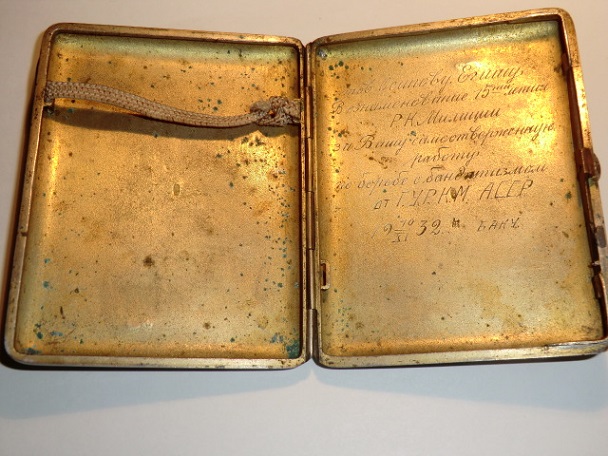 Егишу
В ознаменование 15ти летия
Р.К. Милиции
за Вашу самоотверженную
работу
по борьбе с бандитизмом
от Г.У.Р.К.М. АССР
32 г. БАКУ